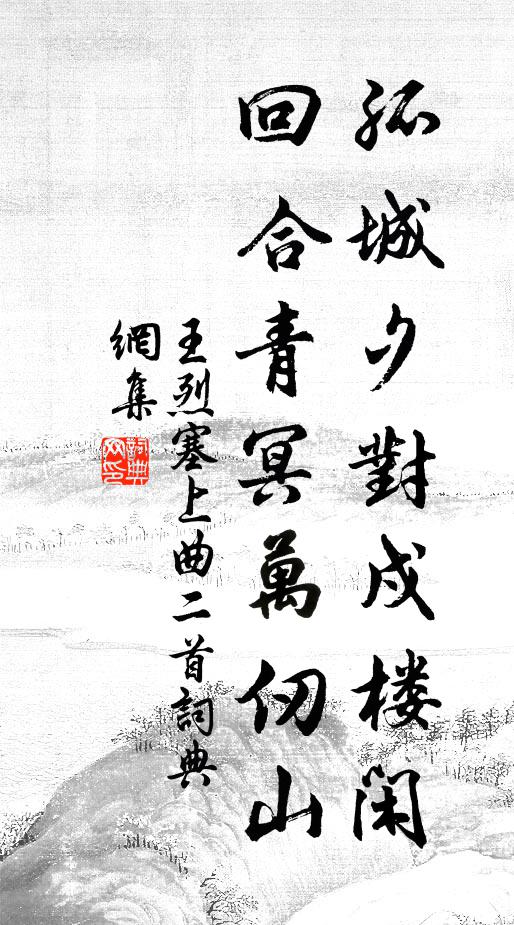 孤城夕對戍楼閑
回合青冥萬仞山
王烈塞上曲二首詞典
網集
詞典
网印